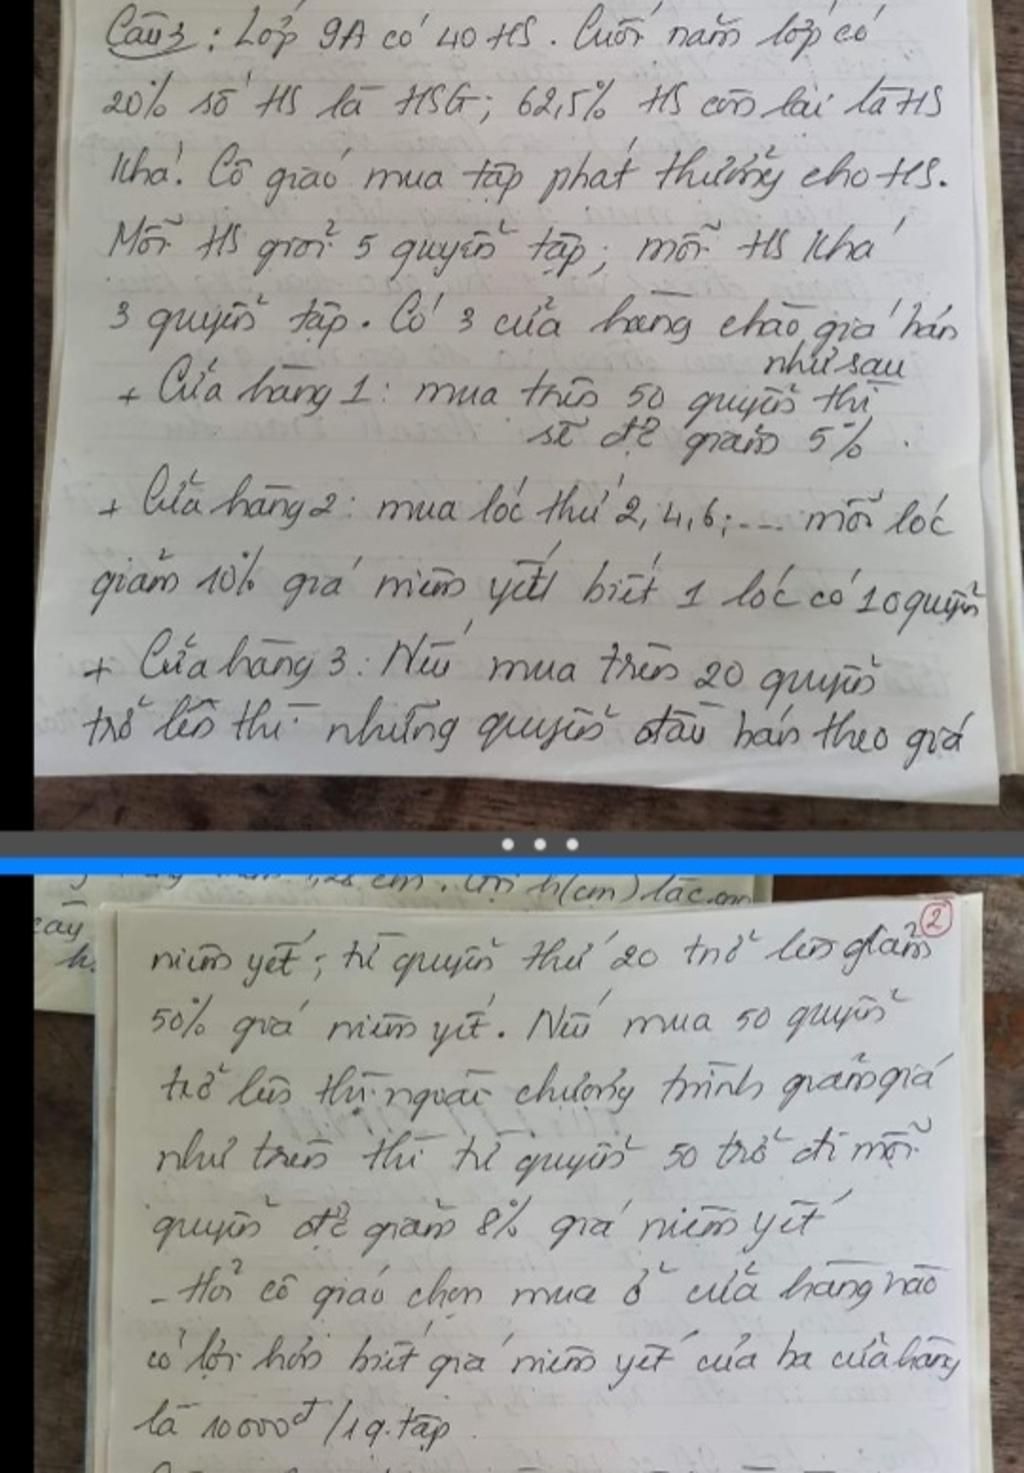 Câu 3: Lớp 9A có 40 HS. Cuối năm lớp có
20% số HS là HSG; 62,5% HS còn lại là HS
khá. Cô giáo mua tập phát thưởng cho HS.
Mỗi HS giỏi 5 quyển tập; mỗi HS khá
3 quyển tập. Có 3 cửa hàng chào giá bán
như sau
+ Cửa hàng 1: mua trên 50 quyển thì
sẽ đc giảm 5%.
+ Cửa hàng 2: mua lốc thứ 2, 4, 6; .... mỗi lốc
giảm 10% giá niêm yết biết 1 lốc có 10 quyển
+ Cửa hàng 3: Nếu mua trên 20 quyển
trở lên thì những quyển đầu bán theo giá
1,28 cm. h(cm)
cây
h.
2
niêm yết; từ quyển thứ 20 trở lên giảm
50% giá niêm yết. Nếu mua 50 quyển
trở lên thì ngoài chương trình giảm giá
như trên thì từ quyển 50 trở đi mỗi
quyển đc giảm 8% giá niêm yết
- Hỏi cô giáo chọn mua ở cửa hàng nào
có lợi hơn biết giá niêm yết của ba cửa hàng
là 10000đ/1q. tập.